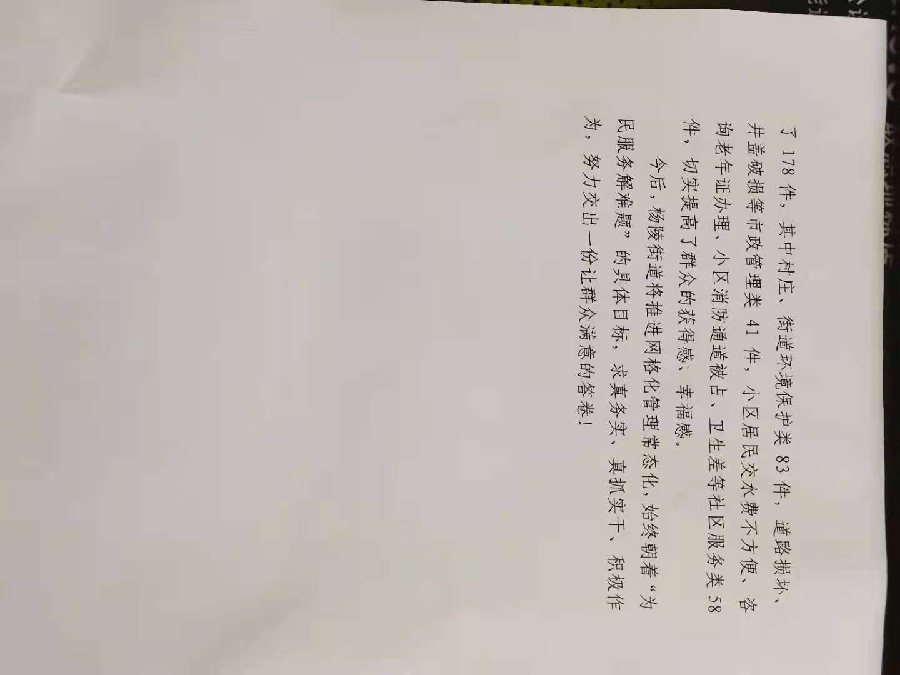 了 178 件，其中村庄、街道环境保护类 83 件，道路损坏、
井盖破损等市政管理类 41 件，小区居民交水费不方便、咨
询老年证办理、小区消防通道被占、卫生差等社区服务类 58
件，切实提高了群众的获得感、幸福感。
今后，杨陵街道将推进网格化管理常态化，始终朝着“为
民服务解难题”的具体目标，求真务实、真抓实干、积极作
为，努力交出一份让群众满意的答卷！